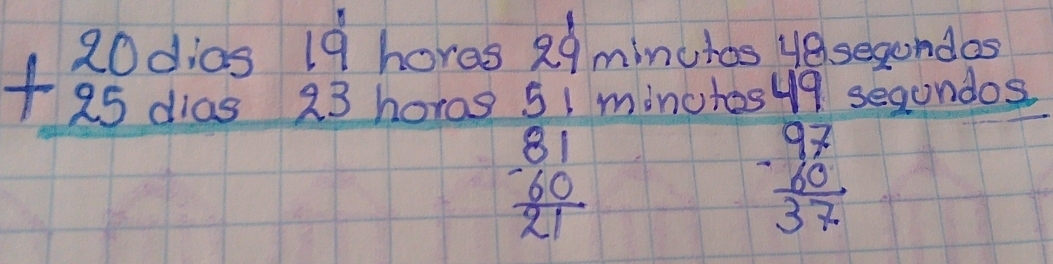 1 1
20 dias 19 horas 29 minutos 48 segundos
+ 25 dias 23 horas 51 minutos 49 segundos
81 97
-60 -60
21 37